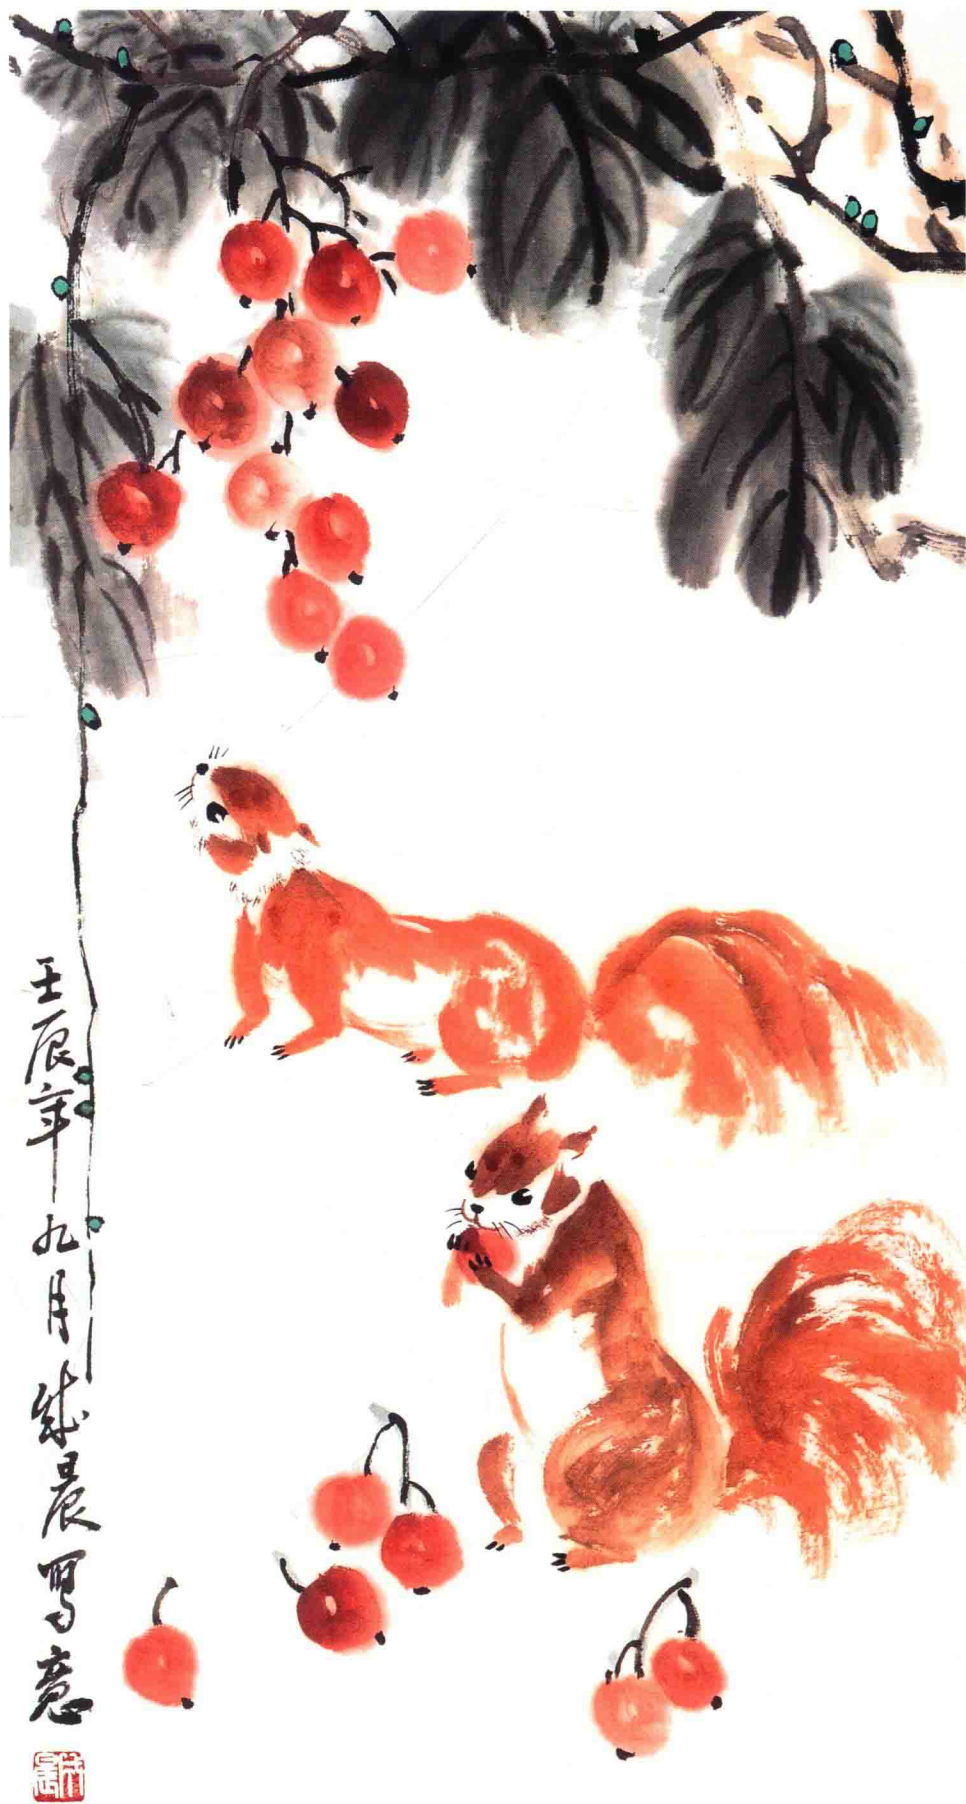 壬辰年九月成晨写意